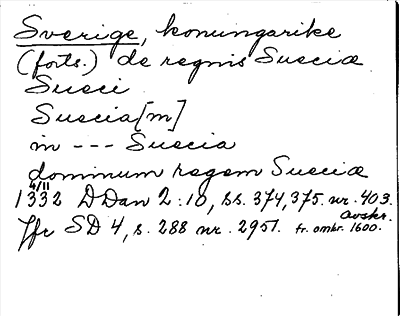 Sverige, konungarike
(forts.) de regnis Sueciæ
Sueci
Suecia[m]
in --- Suecia
dominum regem Sueciæ
4/11
1332 DDan 2:10, ss. 374, 375. nr. 403.
avskr.
Jfr SD 4, s. 288 nr. 2951. fr. omkr. 1600.